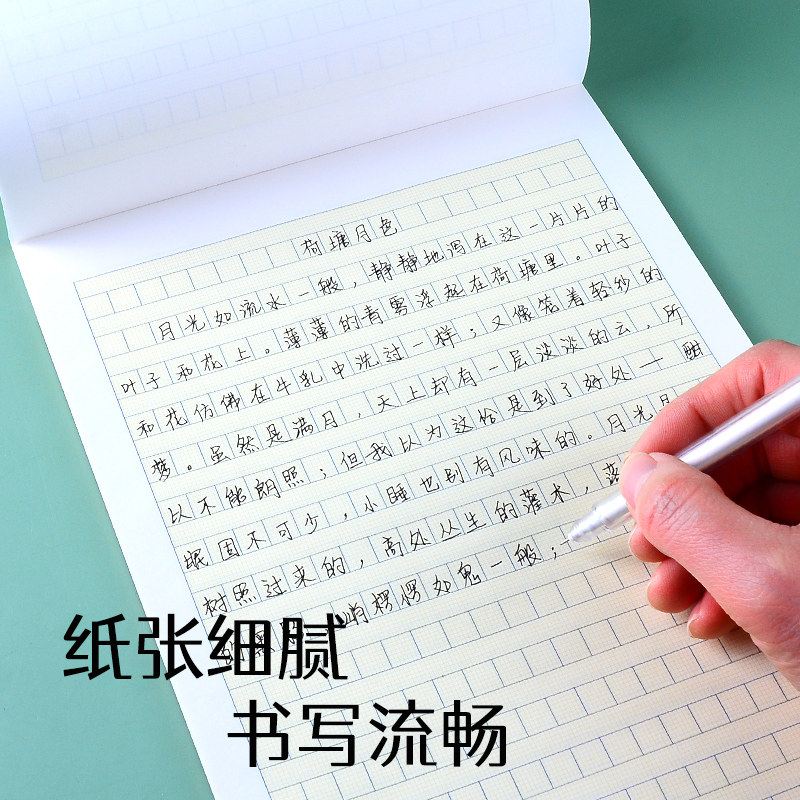 荷塘月色
月光如流水一般，静静地泻在这一片片的
叶子和花上。薄薄的青雾浮起在荷塘里。叶子
和花仿佛在牛乳中洗过一样；又像笼着轻纱的
梦。虽然是满月，天上却有一层淡淡的云，所
以不能朗照；但我以为这恰是到了好处——酣
眠固不可少，小睡也别有风味的。月光
树照过来的，高处丛生的灌木，落
如鬼一般；
纸张细腻
书写流畅